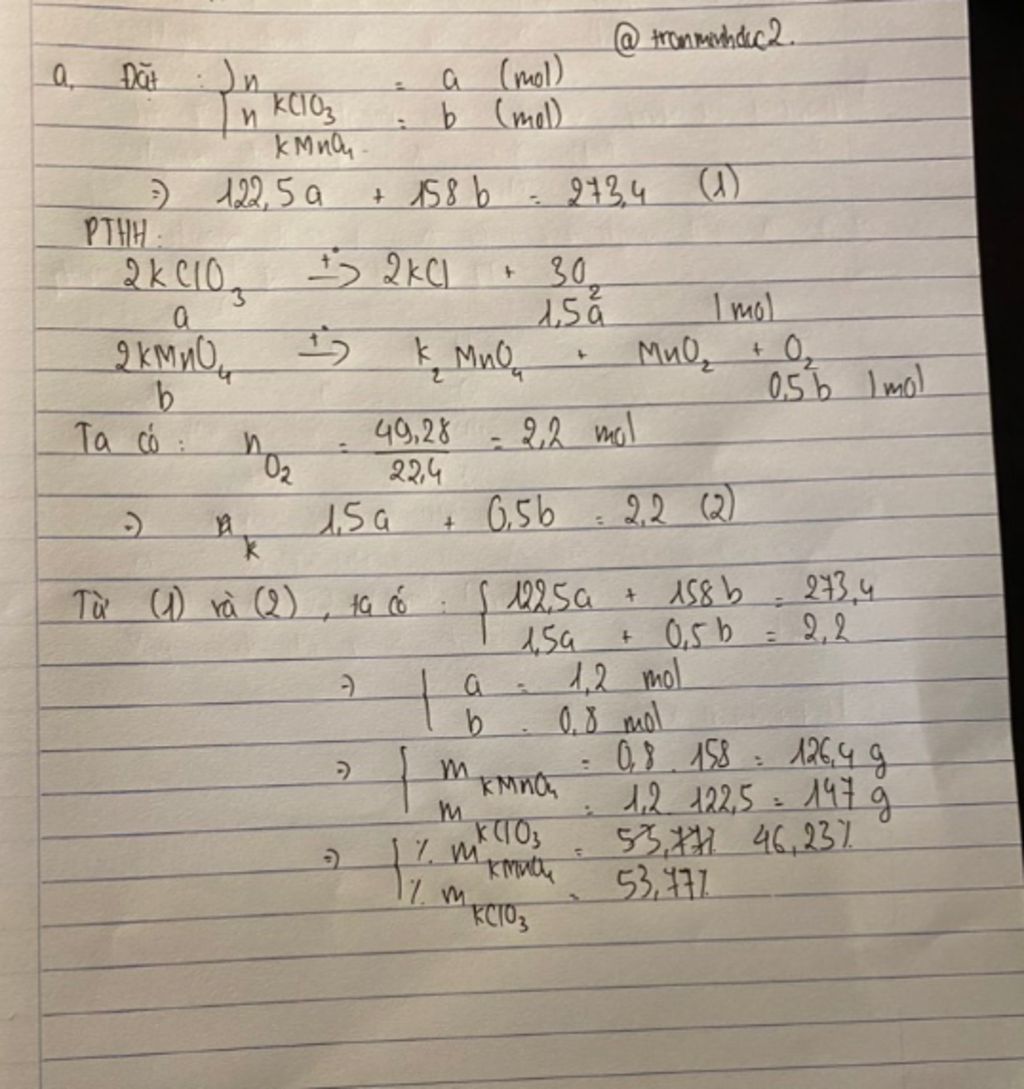 @ tranminhduc2.
a, Đặt : { n KClO3 = a (mol)
n KMnO4 = b (mol)
=> 122,5a + 158b = 273,4 (1)
PTHH:
2KClO3 -t°-> 2KCl + 3O2
a 1,5a /mol
2KMnO4 -t°-> K2MnO4 + MnO2 + O2
b 0,5b /mol
Ta có : nO2 = 49,28/22,4 = 2,2 mol
=> 1,5a + 0,5b = 2,2 (2)
Từ (1) và (2), ta có : { 122,5a + 158b = 273,4
1,5a + 0,5b = 2,2
=> { a = 1,2 mol
b = 0,8 mol
=> { m KMnO4 = 0,8 . 158 = 126,4 g
m KClO3 = 1,2 . 122,5 = 147 g
=> { % m KMnO4 = 53,77% 46,23%
% m KClO3 = 53,77%